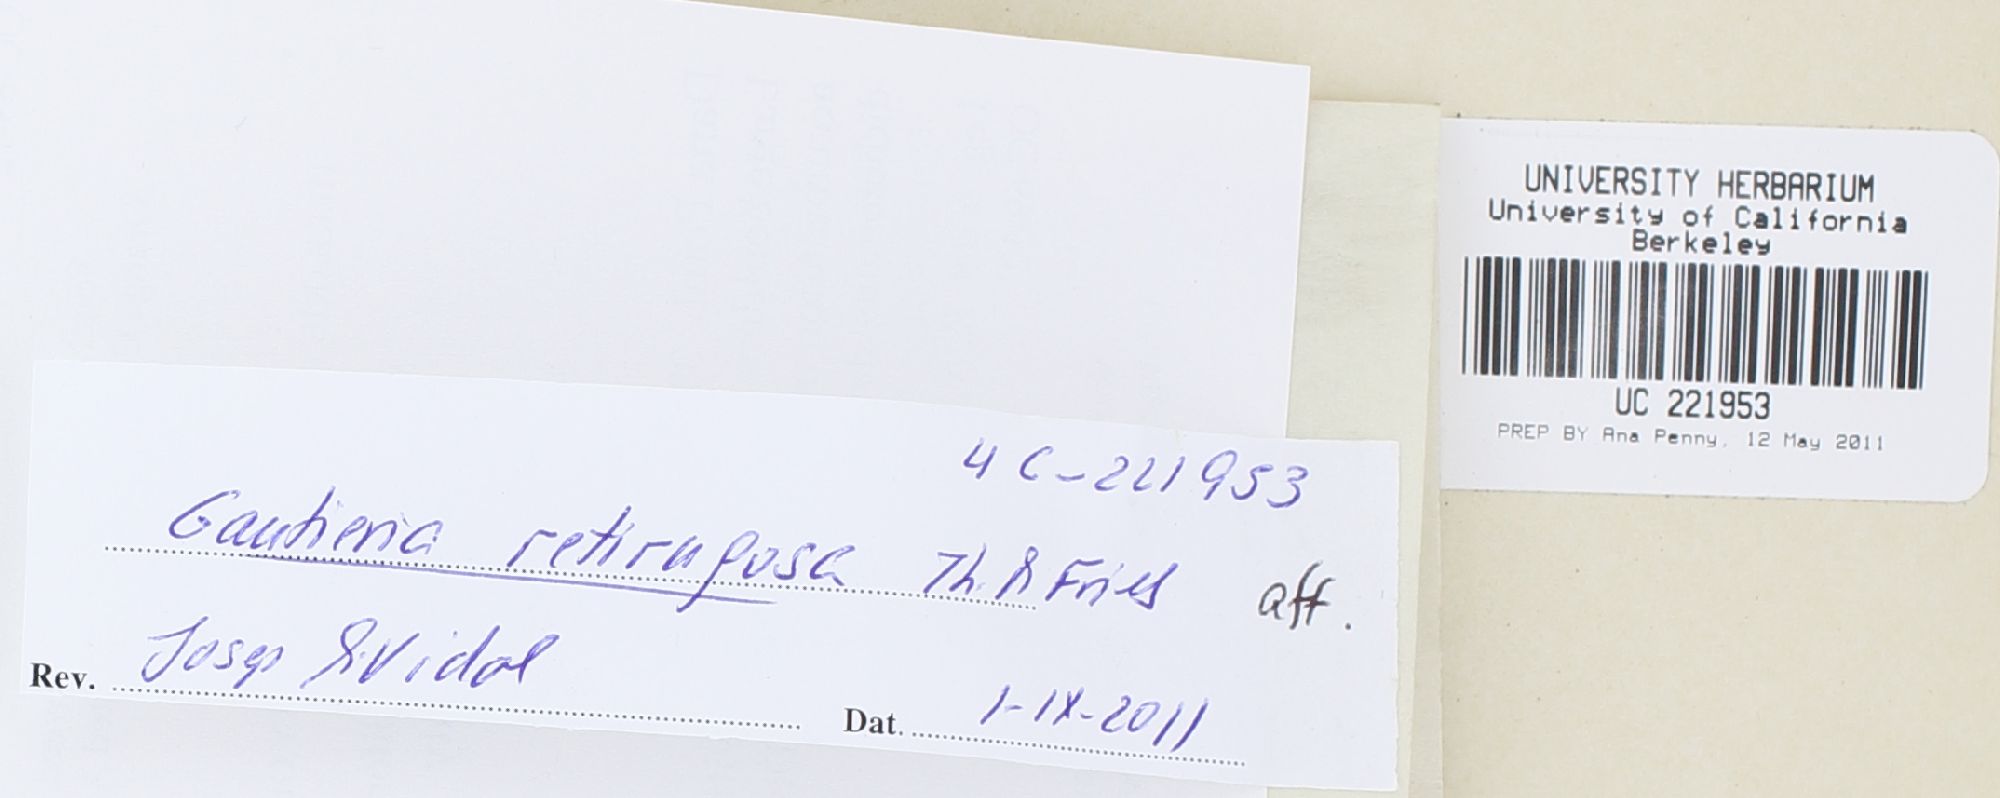 UNIVERSITY HERBARIUM
University of California
Berkeley
UC 221953
PREP BY Ana Penny, 12 May 2011
UC-221953
Gautieria retirugosa Th. & Fries aff.
Rev. Josep &Vidal
Dat. 1-IX-2011